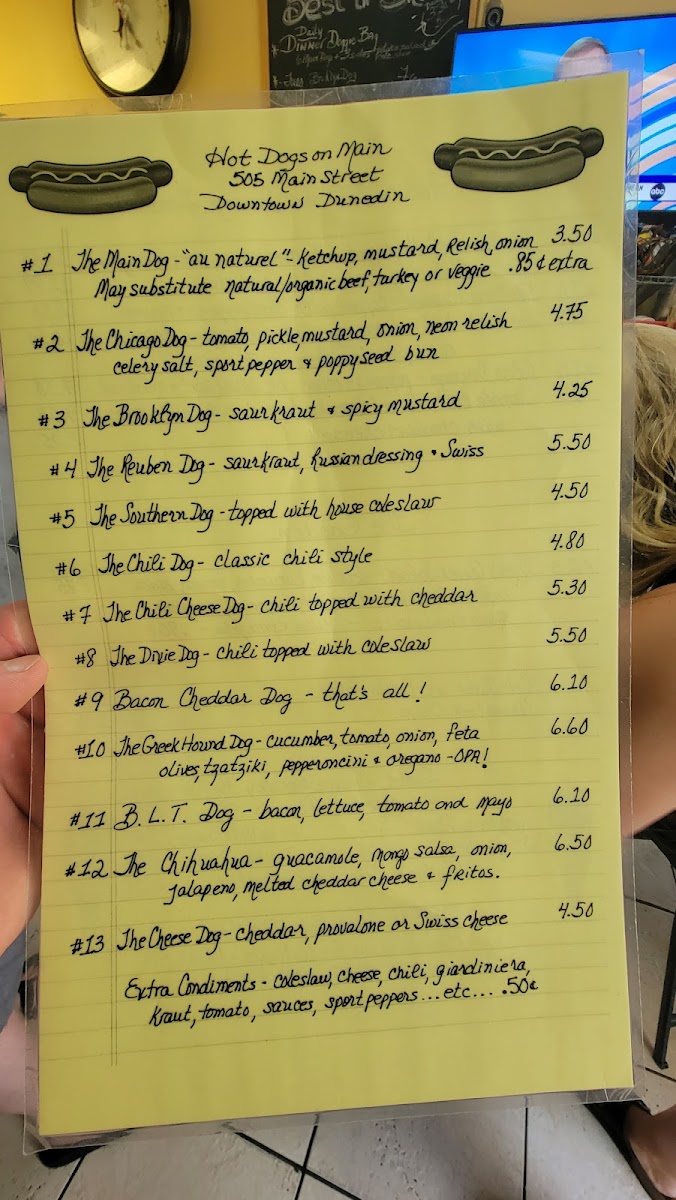 Best in Show
Daily
Dinner Doggie Bag
abc
Hot Dogs on Main
505 Main Street
Downtown Dunedin
#1 The Main Dog - "au naturel" - Ketchup, mustard, Relish, onion 3.50
May substitute natural/organic beef, turkey or veggie .85¢ extra
#2 The Chicago Dog - tomato, pickle, mustard, onion, neon relish 4.75
celery salt, sport pepper & poppyseed bun
#3 The Brooklyn Dog - saurkraut & spicy mustard 4.25
#4 The Reuben Dog - saurkraut, Russian dressing • Swiss 5.50
#5 The Southern Dog - topped with house coleslaw 4.50
#6 The Chili Dog - classic chili style 4.80
#7 The Chili Cheese Dog - chili topped with cheddar 5.30
#8 The Dixie Dog - chili topped with coleslaw 5.50
#9 Bacon Cheddar Dog - that's all! 6.10
#10 The Greek Hound Dog - cucumber, tomato, onion, feta 6.60
olives, tzatziki, pepperoncini & oregano - OPA!
#11 B.L.T. Dog - bacon, lettuce, tomato and mayo 6.10
#12 The Chihuahua - guacamole, mango salsa, onion, 6.50
jalapeno, melted cheddar cheese & fritos.
#13 The Cheese Dog - cheddar, provalone or Swiss cheese 4.50
Extra Condiments - coleslaw, cheese, chili, giardiniera,
Kraut, tomato, sauces, sport peppers...etc... .50¢